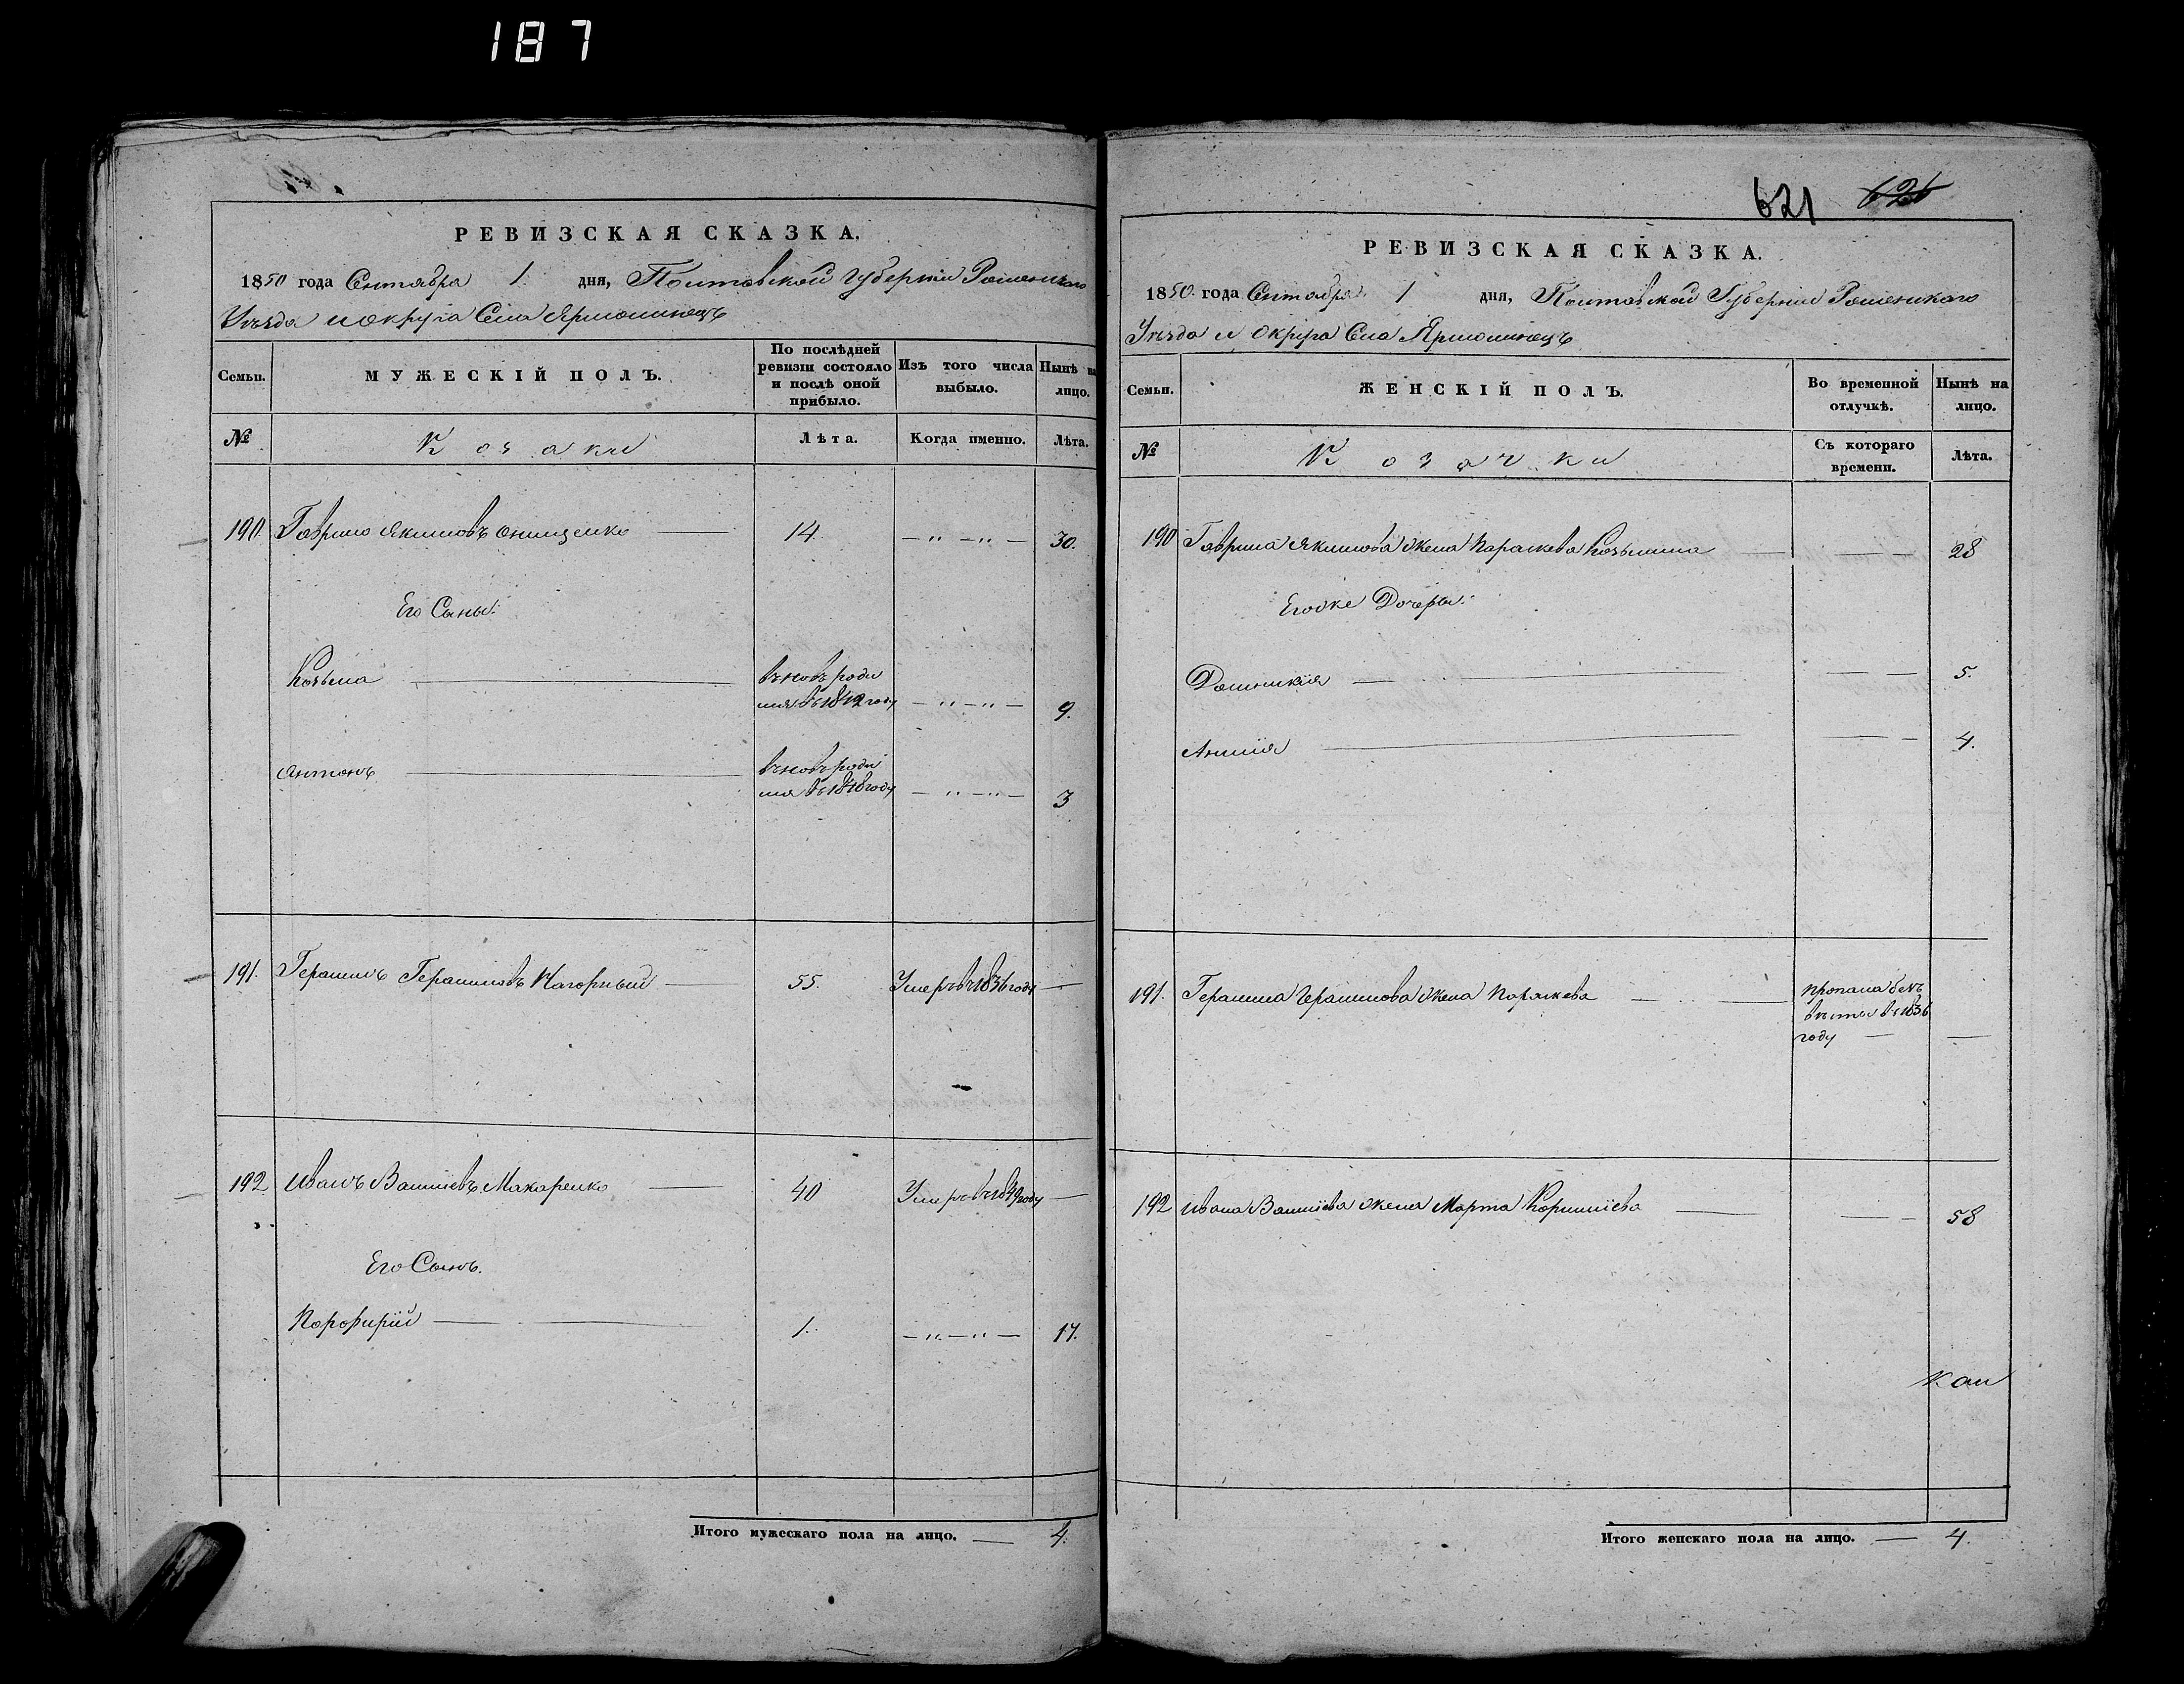 187
РЕВИЗСКАЯ СКАЗКА.
1850 года Сентября 1. дня, Полтавской Губерніи Роменскаго
Уѣзда и округа Села Ярмолинецъ
Семьи.
МУЖЕСКІЙ ПОЛЪ.
По послѣдней
ревизіи состояло
и послѣ оной
прибыло.
Изъ того числа
выбыло.
Нынѣ на
лицо.
№
Козаки
Лѣта.
Когда именно.
Лѣта.
190. Гаврило Якимовъ Онищенко — 14. — " — " — 30.
Его Сыны:
Козьма — вновь роди
лся въ 1842 году — " — " — 9.
Антонъ — вновь роди
лся въ 1848 году — " — " — 3
191. Герасимъ Герасимовъ Нагорный — 55. Умеръ въ 1836 году —
192 Иванъ Васильевъ Макаренко — 40 Умеръ въ 1849 году —
Его Сынъ.
Порфирій — 1. — " — " — 17.
Итого мужескаго пола на лицо. — 4.
621 626
РЕВИЗСКАЯ СКАЗКА.
1850. года Сентября 1 дня, Полтавской Губерніи Роменскаго
Уѣзда и Округа Села Ярмолинецъ
Семьи.
ЖЕНСКІЙ ПОЛЪ.
Во временной
отлучкѣ.
Нынѣ на
лицо.
№
Козачки
Съ котораго
времени.
Лѣта.
190 Гаврила Якимова жена Параскева Козьмина — — 28
Его же Дочеры:
Домникія — — — 5.
Анна — — — 4.
191. Герасима Герасимова жена Параскева — пропала безъ
вѣсти въ 1836
году — —
192 Ивана Васильева жена Марта Корнилiева — — 58
Итого женскаго пола на лицо. — 4.